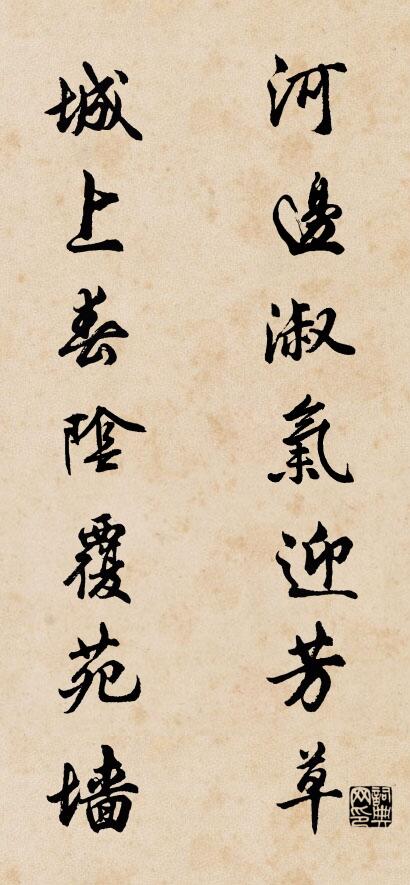 河邊淑氣迎芳草
城上春陰覆苑墻
詞典網印